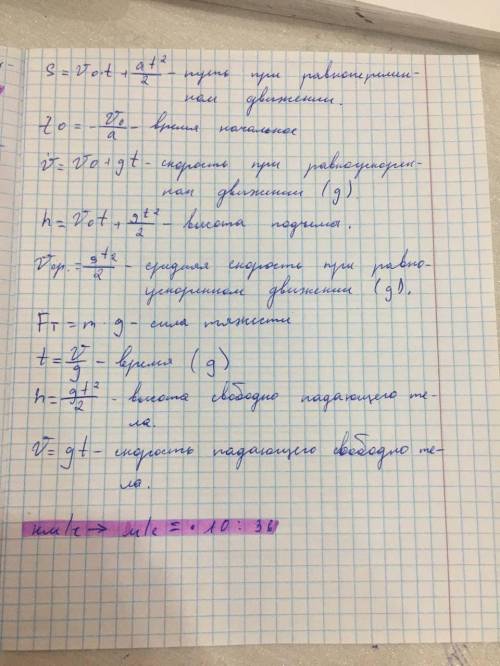 S = v₀·t + at²/2 - путь при равноперемен-
ном движении.
t₀ = -v₀/a - время начальное
v = v₀ + gt - скорость при равноускорен-
ном движении (g)
h = v₀t + gt²/2 - высота подъёма.
vср. = gt²/2 - средняя скорость при равно-
ускоренном движении (g).
Fт = m · g - сила тяжести
t = v/g - время (g)
h = gt²/2 - высота свободно падающего те-
ла.
v = gt - скорость падающего свободно те-
ла.
км/ч → м/с = · 10 : 36